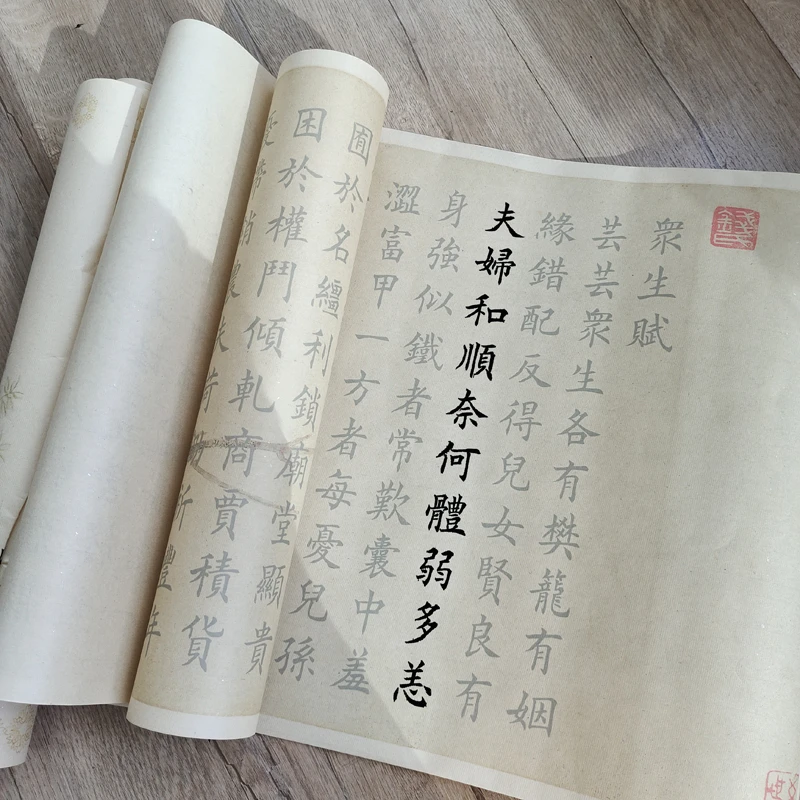 衆生賦
芸芸衆生各有樊籠有姻
緣錯配反得兒女賢良有
夫婦和順奈何體弱多恙
身強似鐵者常歎囊中羞
澀富甲一方者每憂兒孫
囿於名韁利鎖廟堂顯貴
困於權鬥傾軋商賈積貨
豐年